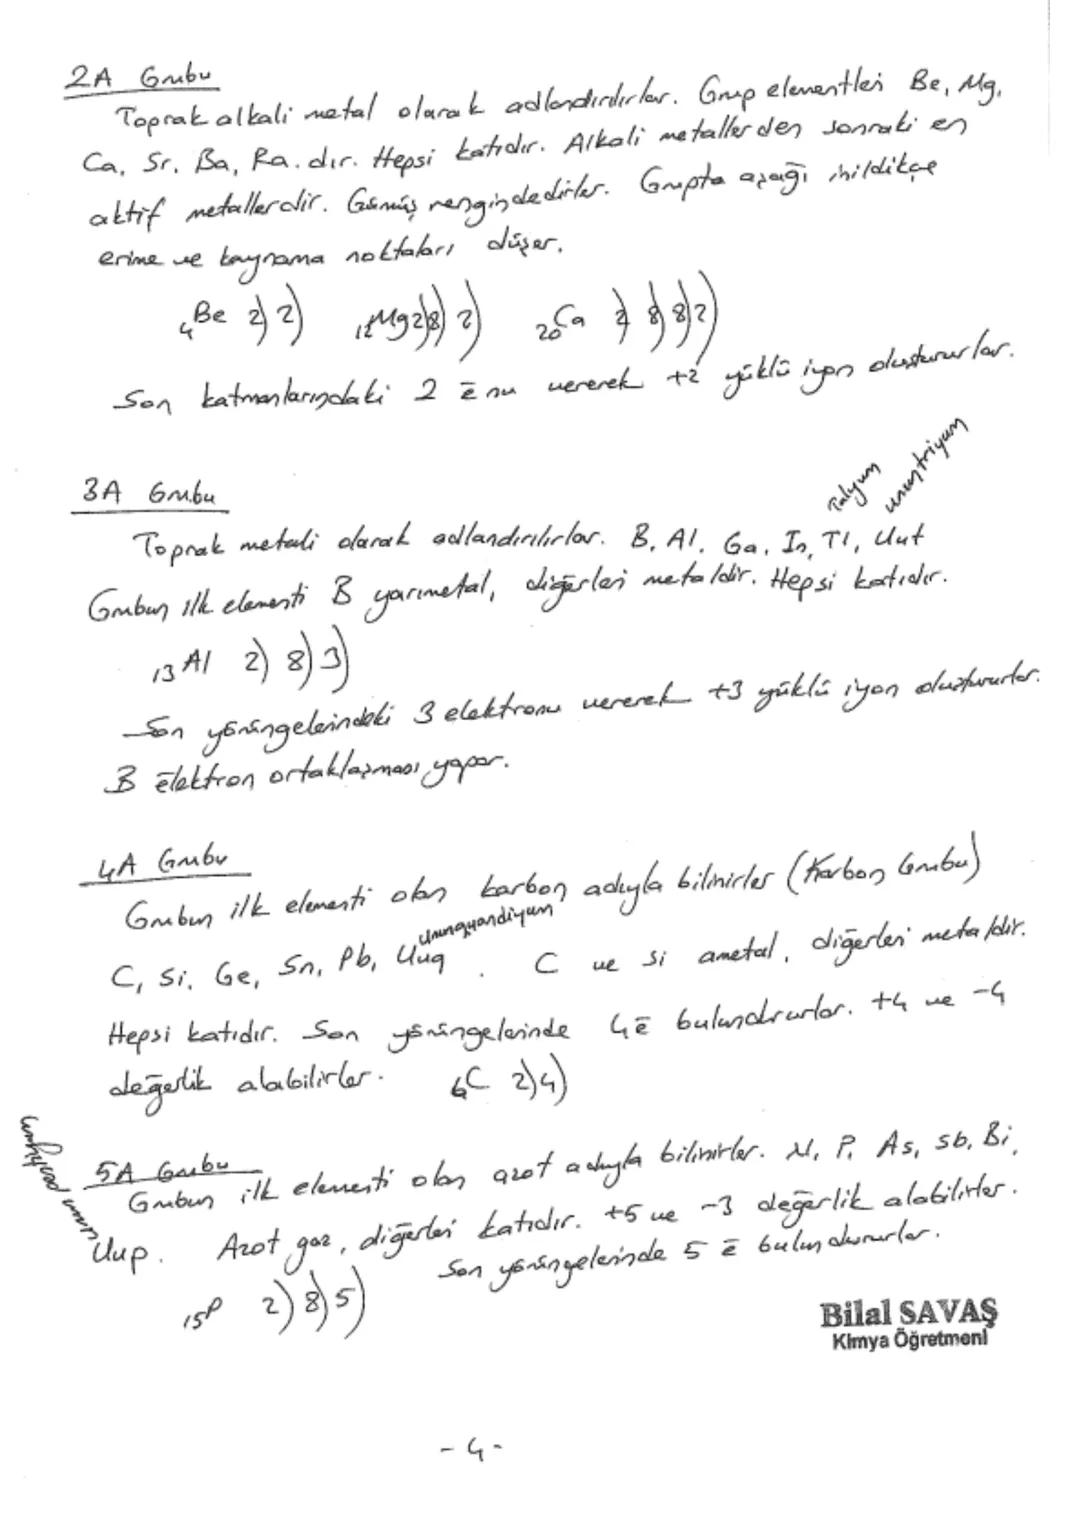 2A Grubu
Toprak alkali metal olarak adlandırılırlar. Grup elementleri Be, Mg,
Ca, Sr, Ba, Ra. dır. Hepsi katıdır. Alkali metallerden sonraki en
aktif metallerdir. Gümüş rengindedirler. Grupta aşağı inildikçe
erime ve kaynama noktaları düşer.
4Be 2) 2) 12Mg 2) 8) 2) 20Ca 2) 8) 8) 2)
Son katmanlarındaki 2 ē nu vererek +2 yüklü iyon oluştururlar.
Talyum ununtriyum
3A Grubu
Toprak metali olarak adlandırılırlar. B, Al, Ga, In, Tl, Uut
Grubun ilk elementi B yarımetal, diğerleri metaldir. Hepsi katıdır.
13Al 2) 8) 3)
Son yörüngelerindeki 3 elektronu vererek +3 yüklü iyon oluştururlar.
B elektron ortaklaşması yapar.
4A Grubu
Grubun ilk elementi olan karbon adıyla bilinirler (Karbon Grubu)
Ununquandiyum
C, Si, Ge, Sn, Pb, Uuq . C ve Si ametal, diğerleri metaldir.
Hepsi katıdır. Son yörüngelerinde 4ē bulundururlar. +4 ve -4
değerlik alabilirler. 6C 2) 4)
5A Grubu
Grubun ilk elementi olan azot adıyla bilinirler. N, P, As, Sb, Bi,
Uup. Azot gaz, diğerleri katıdır. +5 ve -3 değerlik alabilirler.
Son yörüngelerinde 5 ē bulundururlar.
15P 2) 8) 5)
Bilal SAVAŞ
Kimya Öğretmeni
- 4 -